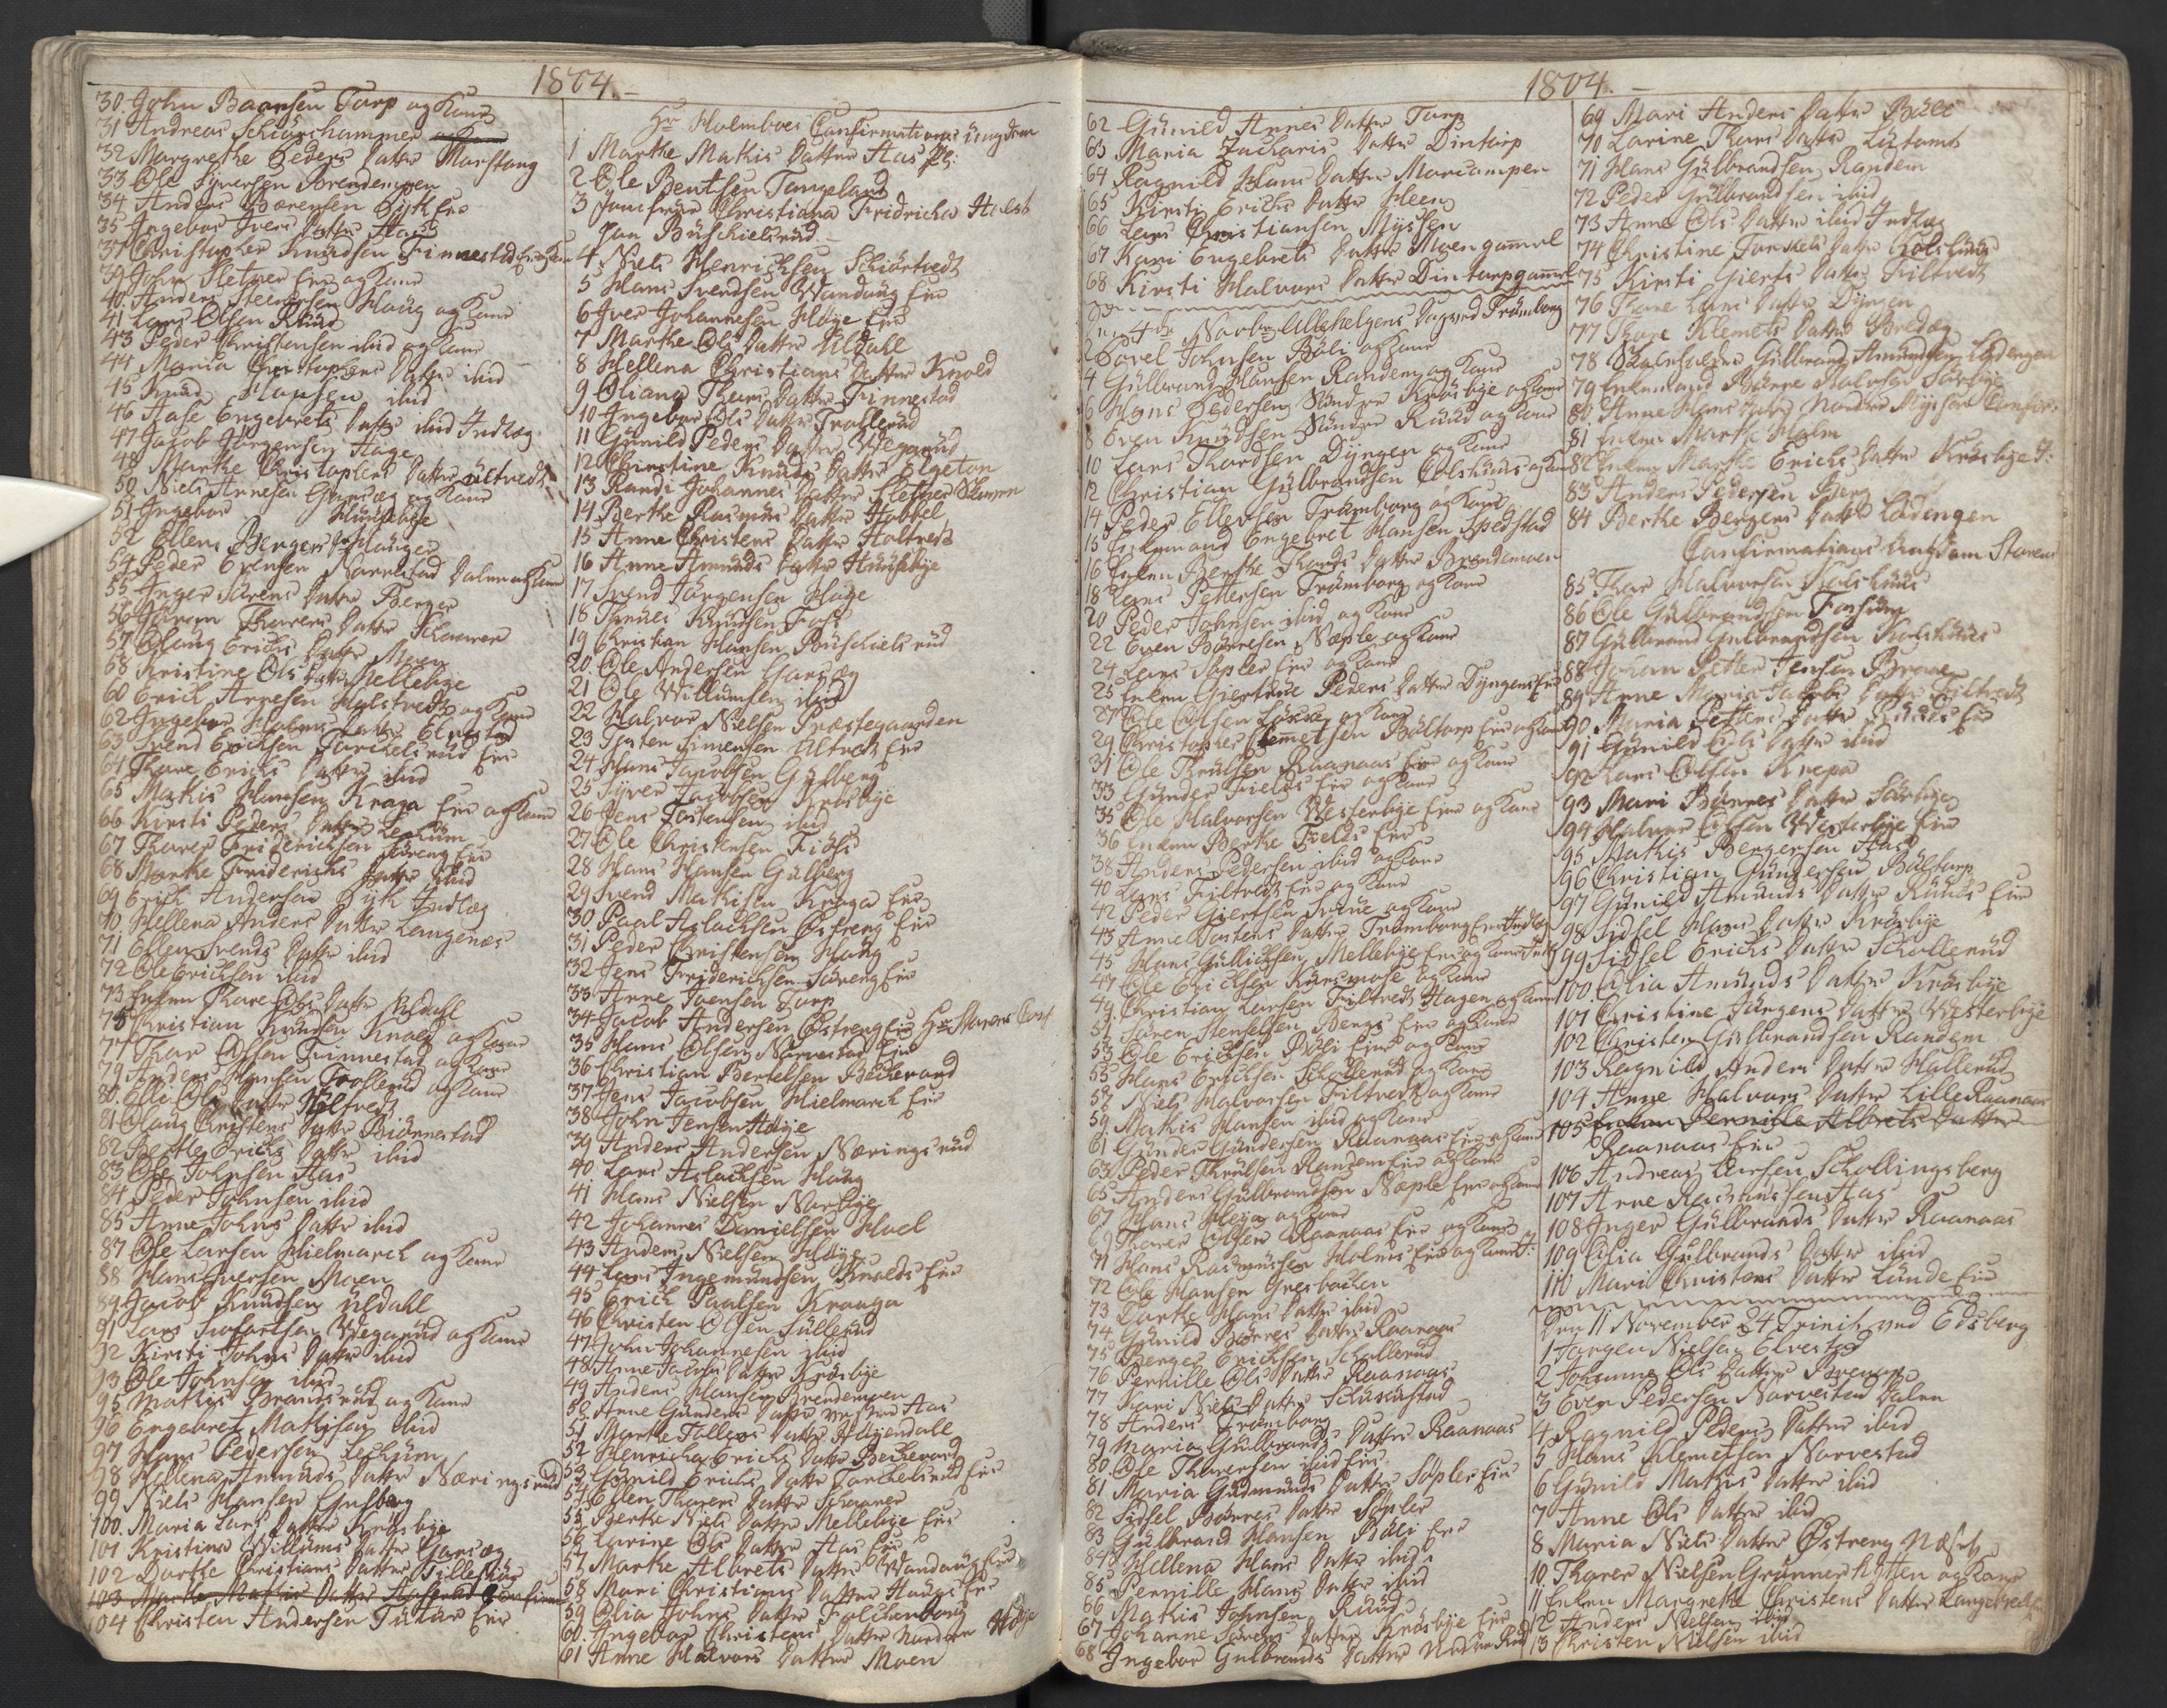 1804.
30. John Baansen Torp og Kone
31 Andreas Schiørshammer
32 Margrethe Peders Datter Morstang
33 Ole Syversen Brendemoen
34 Anders Sørensen Dyk Eie
35 Ingebor Ivers Datter Haug
37 Christopher Knudsen Finnestad Eie og Kone
39 John Sletner Eie og Kone
40 Anders Steenersen Haug og Kone
41 Lars Olsen Ruud
43 Peder Christensen ibid og Kone
44 Maria Christophers Datter ibid
45 Knud Hansen ibid
46 Aase Engebrets Datter ibid Indlæg
47 Jacob Jørgensen Hage
48 Marthe Christophers Datter Ultvedt
50 Niels Arnesen Garseg og Kone
51 Ingebor Huusebye
52 Ellen Bergers Datter
54 Peder Evensen Narvestad Dalen og Kone
55 Inger Sørens Datter Berger
56 Gunror Thorers Datter Schaarer
57 Olaug Erichs Datter Moen
58 Kristine Ols Datter Mellebye
60 Erich Arnesen Holstvedt og Kone
62 Ingebor Holms Datter Elvestad
63 Svend Erichsen Torkelsrud Eie
64 Thore Erichs Datter ibid
65 Mathis Hansen Kraga Eie og Kone
66 Kirsti Peders Datter Lechum
67 Thorer Friderichsen Søreng Eie
68 Marthe Friderichs Datter ibid
69 Erich Andersen Dyk Indlæg
70 Hellena Anders Datter Langenæs
71 Ellen Svends Datter ibid
72 Ole Erichsen ibid
73 Enken Thore Ols Datter Uldahl
75 Christian Knudsen Knold og Kone
77 Thor Olsen Finnestad og Kone
79 Anders Hansen Trollerud og Kone
80. Elli Ols Datter Hiltvedt
81 Olaug Christens Datter Biørnestad
82 Berthe Erichs Datter ibid
83 Ole Johnsen Aas
84 Peder Johnsen ibid
85 Anne Johns Datter ibid
87 Ole Larsen Hielmarck og Kone
88 Hans Iversen Moen
89 Jacob Knudsen Uldahl
91 Lars Siofartsen Wegarud og Kone
92 Kirsti Johns Datter ibid
93 Ole Johnsen ibid
95 Mathis Brandsrud og Kone
96 Engebret Mathisen ibid
97 Hans Pedersen Lechum
98 Hellena Amunds Datter Næringsrud
99 Niels Hansen Gulberg
100. Maria Lars Datter Krosbye
101 Kristine Willums Datter Garseg
102 Dorthe Christians Datter Lillefios
103 Marthe Mathis Datter
104 Christen Andersen Tutur Eie
Hr Holmboes Confirmations Ungdom
1 Marthe Mathis Datter Aas Pl:
2 Ole Bentsen Tangeland
3 Jomfrue Christiana Fridricha Holst
Jan Buschielsrud
4 Niels Henrichsen Schiørtvedt
5 Hans Svendsen Wandaug Eie
6 Iver Johannesen Høye Eie
7 Marthe Ols Datter Uldahl
8 Hellena Christians Datter Knold
9 Oliana Thors Datter Finnestad
10 Ingebor Ols Datter Trollerud
11 Gunild Peders Datter Wegarud
12 Christine Knuds Datter Elgeton
13 Randi Johannes Datter Sletner
14 Berthe Rasmus Datter Hobbel
15 Anne Christens Datter Holtvedt
16 Anne Amunds Datter Huusebye
17 Svend Jørgensen Hage
18 Thrues Knudsen Fos
19 Christian Hansen Buschielsrud
20. Ole Andersen Garseg
21 Ole Willumsen ibid
22 Halvor Nielsen Præstegaarden
23 Torsten Simensen Ultvedt Eie
24 Hans Jacobsen Gulberg
25 Syver Jacobsen Krosbye
26 Jens Torstensen ibid
27 Ole Christensen Fiøs
28 Hans Hansen Gulberg
29 Svend Mathisen Kraga Eie
30. Paal Aslachsen Østreng Eie
31 Peder Christensen Haug
32 Jens Friderichsen Søreng Eie
33 Anne Joensen Torp
34 Jacob Andersen Østreng Eie Hr Storens Conf
35 Hans Olsen Narvestad Eie
36 Christian Bertelsen Bechevand
37 Jens Jacobsen Hielmarck Eie
38 John Jensen Høye
39 Anders Andersen Næringsrud
40 Lars Aslachsen Haug
41 Hans Nielsen Norbye
42 Johannes Danielsen Hoel
43 Anders Nielsen Høye
44 Lars Ingemundsen Knolds Eie
45 Erich Paalsen Kraaga
46 Christen Olsen Sullerud
47 John Johannesen ibid
48 Anne Jacobs Datter Krosbye
49 Anders Hansen Brendemoen
50 Anne Gunders Datter Aas
51 Marthe Tollers Datter Høyendall
52 Henricha Erichs Datter Bechevand
53 Gunild Erichs Datter Torchelsrud Eie
54 Ellen Thorers Datter Schaarer
55 Berthe Niels Datter Mellebye Eie
56 Lavine Ols Datter Aas Eie
57 Marthe Albrets Datter Wandaug Eie
58 Mari Christians Datter Haugs Eie
59 Olia Johns Datter Falchenborg
60. Ingebor Christens Datter Nordre Høye
61 Anne Halvors Datter Moen
1804.
62 Gunild Annes Datter Torp
63 Maria Zacharis Datter Dintorp
64 Ragnild Hans Datter Morcumpen
65 Kirsti Erichs Datter Heen
66 Lars Christiansen Myssen
67 Kari Engebrets Datter Moen gammel
68 Kirsti Halvors Datter Dintorp gammel
Den 4de Novbr Allehelgens Dag ved Trømborg
2 Povel Johnsen Bøli og Kone
4 Gulbrand Hansen Randem og Kone
6 Hans Pedersen Søndre Krosbye og Kone
8 Even Knudsen Søndre Ruud og Kone
10 Lars Thordsen Dyngen og Kone
12 Christian Gulbrandsen Colshuus og Kone
14 Peder Ellevsen Trømborg og Kone
15 Enkemand Engebret Hansen Hedstad
16 Enken Berthe Thords Datter Brendemoen
18 Lars Pettersen Trømborg og Kone
20 Peder Johnsen ibid og Kone
22 Even Børresen Næple og Kone
24 Lars Sopler Eie og Kone
25 Enken Giertrue Peders Datter Dyngens Eie
27 Ole Olsen Løkke og Kone
29 Christopher Clemetsen Bøltorp Eie og Kone
31 Ole Thrulsen Raanaas Eie og Kone
33 Gunder Fields Eie og Kone
35 Ole Halvorsen Westerbye Eie og Kone
36 Enken Berthe Fields Eie
38 Anders Pedersen ibid og Kone
40 Lars Filtvedt Eie og Kone
42 Peder Giertsen Svine og Kone
43 Anne Torstens Datter Trømborg Eie Indlæg
45 Hans Gullichsen Mellebye Eie og Kone
47 Ole Erichsen Kursmose og Kone
49 Christian Larsen Filtvedt Hagen og Kone
51 Søren Stensesen Bergs Eie og Kone
53 Ole Erichsen Bøli Eie og Kone
55 Hans Erichsen Schollerud og Kone
57 Niels Halvorsen Filtvedt og Kone
59 Mathis Hansen ibid og Kone
61 Gunder Gundersen Raanaas Eie og Kone
63 Peder Thrulsen Randem Eie og Kone
65 Anders Gulbrandsen Næple Eie og Kone
67 Hans Heja og Kone
69 Thorer Olsen Raanaas Eie og Kone
71 Hans Rasmussen Holms Eie og Kone
72 Ole Hansen Gresbachen
73 Dorthe Hans Datter ibid
74 Gunild Børres Datter Raanaas
75 Berger Erichsen Schollerud
76 Pernille Ols Datter Raanaas
77 Kari Niels Datter
78 Anders Trømborg
79 Maria Gulbrands Datter Raanaas
80 Ole Thorersen ibid Eie
81 Maria Gudmunds Datter Sopler Eie
82 Sidsel Børres Datter Sopler
83 Gulbrand Hansen Bøli Eie
84 Hellena Hans Datter ibid
85 Pernille Hans Datter ibid
86 Mathis Johnsen Ruud
67 Johanne Sørens Datter Krosbye Eie
68 Ingebor Gulbrands Datter Nordre Rud
69 Mari Anders Datter Bøler
70 Larine Thors Datter Lutomt
71 Hans Gulbrandsen Randem
72 Peder Gulbrandsen ibid
73 Anne Ols Datter ibid Indlæg
74 Christine Torchels Datter Colshuus
75 Kirsti Gierts Datter Filtvedt
76 Thore Lars Datter Dyngen
77 Thore Klemets Datter Bredeg
78 Skoleholder Gulbrand Amundsen Ladengen
79 Enkemand Børre Halvorsen Sørbye
80. Anne Hans Datter Nordre Myssen Confir:
81 Enken Marthe Holm
82 Enken Marthe Erichs Datter Krosbye
83 Anders Pedersen Berg
84 Berthe Bergers Datter Ladengen
Confirmations Ungdom Storens
85 Thor Halvorsen Kolshuus
86 Ole Gulbrandsen Fossum
87 Gulbrand Gulbrandsen Kolshuus
88 Johan Petter Jensen Brone
89 Anne Maria Jacobs Datter Filtvedt
90. Maria Petters Datter Ruuds Eie
91 Gunild Ols Datter ibid
92 Lars Olsen Knepa
93 Mari Børres Datter Sørbye
94 Halvor Olsen Westerbye Eie
95 Mathis Bergersen Aas
96 Christian Gundersen Bøltorp
97 Gunild Amunds Datter Ruuds Eie
98 Sidsel Hans Datter Krosbye
99 Sidsel Erichs Datter Schollerud
100 Olia Amunds Datter Krosbye
101 Christine Jørgens Datter Westerbye
102 Christen Gulbrandsen Randem
103 Ragnild Anders Datter Hallerud
104 Anne Halvors Datter Lille Raanaas
105 Enken Pernille Albrets Datter
Raanaas Eie
106 Andreas Larsen Schollingsberg
107 Arne Rasmussen Aas
108 Inger Gulbrands Datter Raanaas
109 Olia Gulbrands Datter ibid
110 Mari Christens Datter Lunde Eie
Den 11 November 24 Trinit ved Edsberg
1 Jørgen Nielsen Elvestad
2 Johanne Ols Datter
3 Even Pedersen Narvestad Dalen
4 Ragnild Peders Datter ibid
5 Hans Klemetsen Narvestad
6 Gunild Mathis Datter ibid
7 Anne Ols Datter ibid
8 Maria Niels Datter Østreng Næset
10. Thorer Nielsen Grønnerhytten og Kone
11 Enken Margrethe Christens Datter Langebrech
12 Anders Nielsen ibid
13 Christen Nielsen ibid